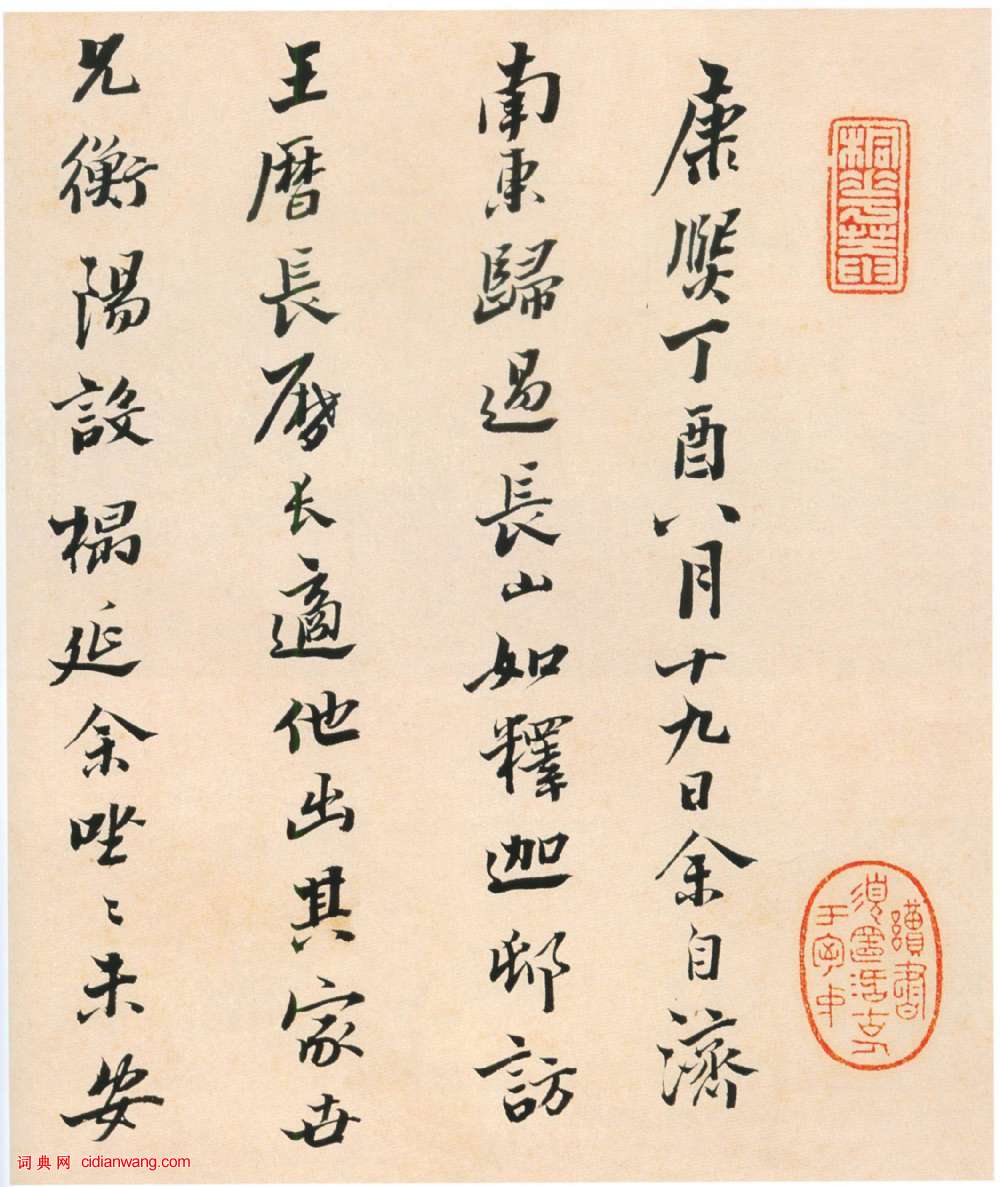 康熙丁酉八月十九日余自濟
南東歸過長山如釋迦邨訪
王曆長曆长適他出其家世
兄衡陽設榻延余唑〻未安
词典网 cidianwang.com